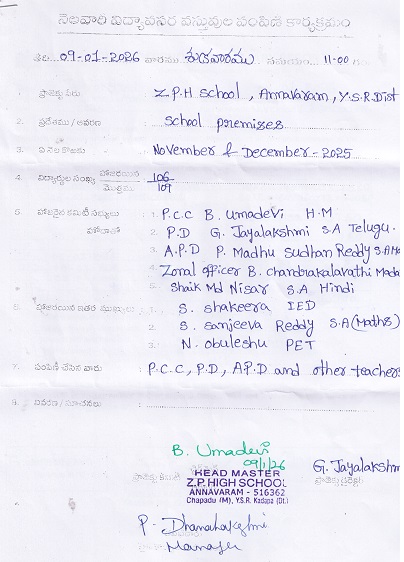 నెలవారి విద్యావనర వస్తువుల పంపిణి కార్యక్రమం
తేది...09-01-2026 వారము శుక్రవారము సమయం 11-00
1. ప్రాజెక్టు పేరు : Z.P.H School, Annavaram, Y.S.R.Dist
2. ప్రదేశము / ఆవరణ : School premises
3. ఏ నెల కొఱకు : November & December-2025
4. విద్యార్థుల సంఖ్య హాజరయిన 106
మొత్తము 109
5. హాజరైన కమిటీ సభ్యులు : 1. P.C.C B. Umadevi H.M
హోదాతో 2. P.D G. Jayalakshmi S.A Telugu.
3. A.P.D P. Madhu Sudhan Reddy S.A
4. Zonal officer B. Chandrakalavathi Mada
5. Shaik Md Nisar S.A Hindi
6. హాజరయిన ఇతర ముఖ్యులు : 1. S. Shakeera IED
2. S. Sanjeeva Reddy S.A (Maths)
3. N. Obuleshu PET
7. పంపిణీ చేసిన వారు : P.C.C, P.D, A.P.D and other teachers
8. వివరణ / సూచనలు :
B. Umadevi
09/1/26
ప్రాజెక్టు కమిటీ
HEAD MASTER
Z.P. HIGH SCHOOL
ANNAVARAM - 516362
Chapadu (M), Y.S.R. Kadapa (Dt.)
G. Jayalakshm
ప్రాజెక్టు డైరెక్టర్
P. Dhanalakshmi
Manager